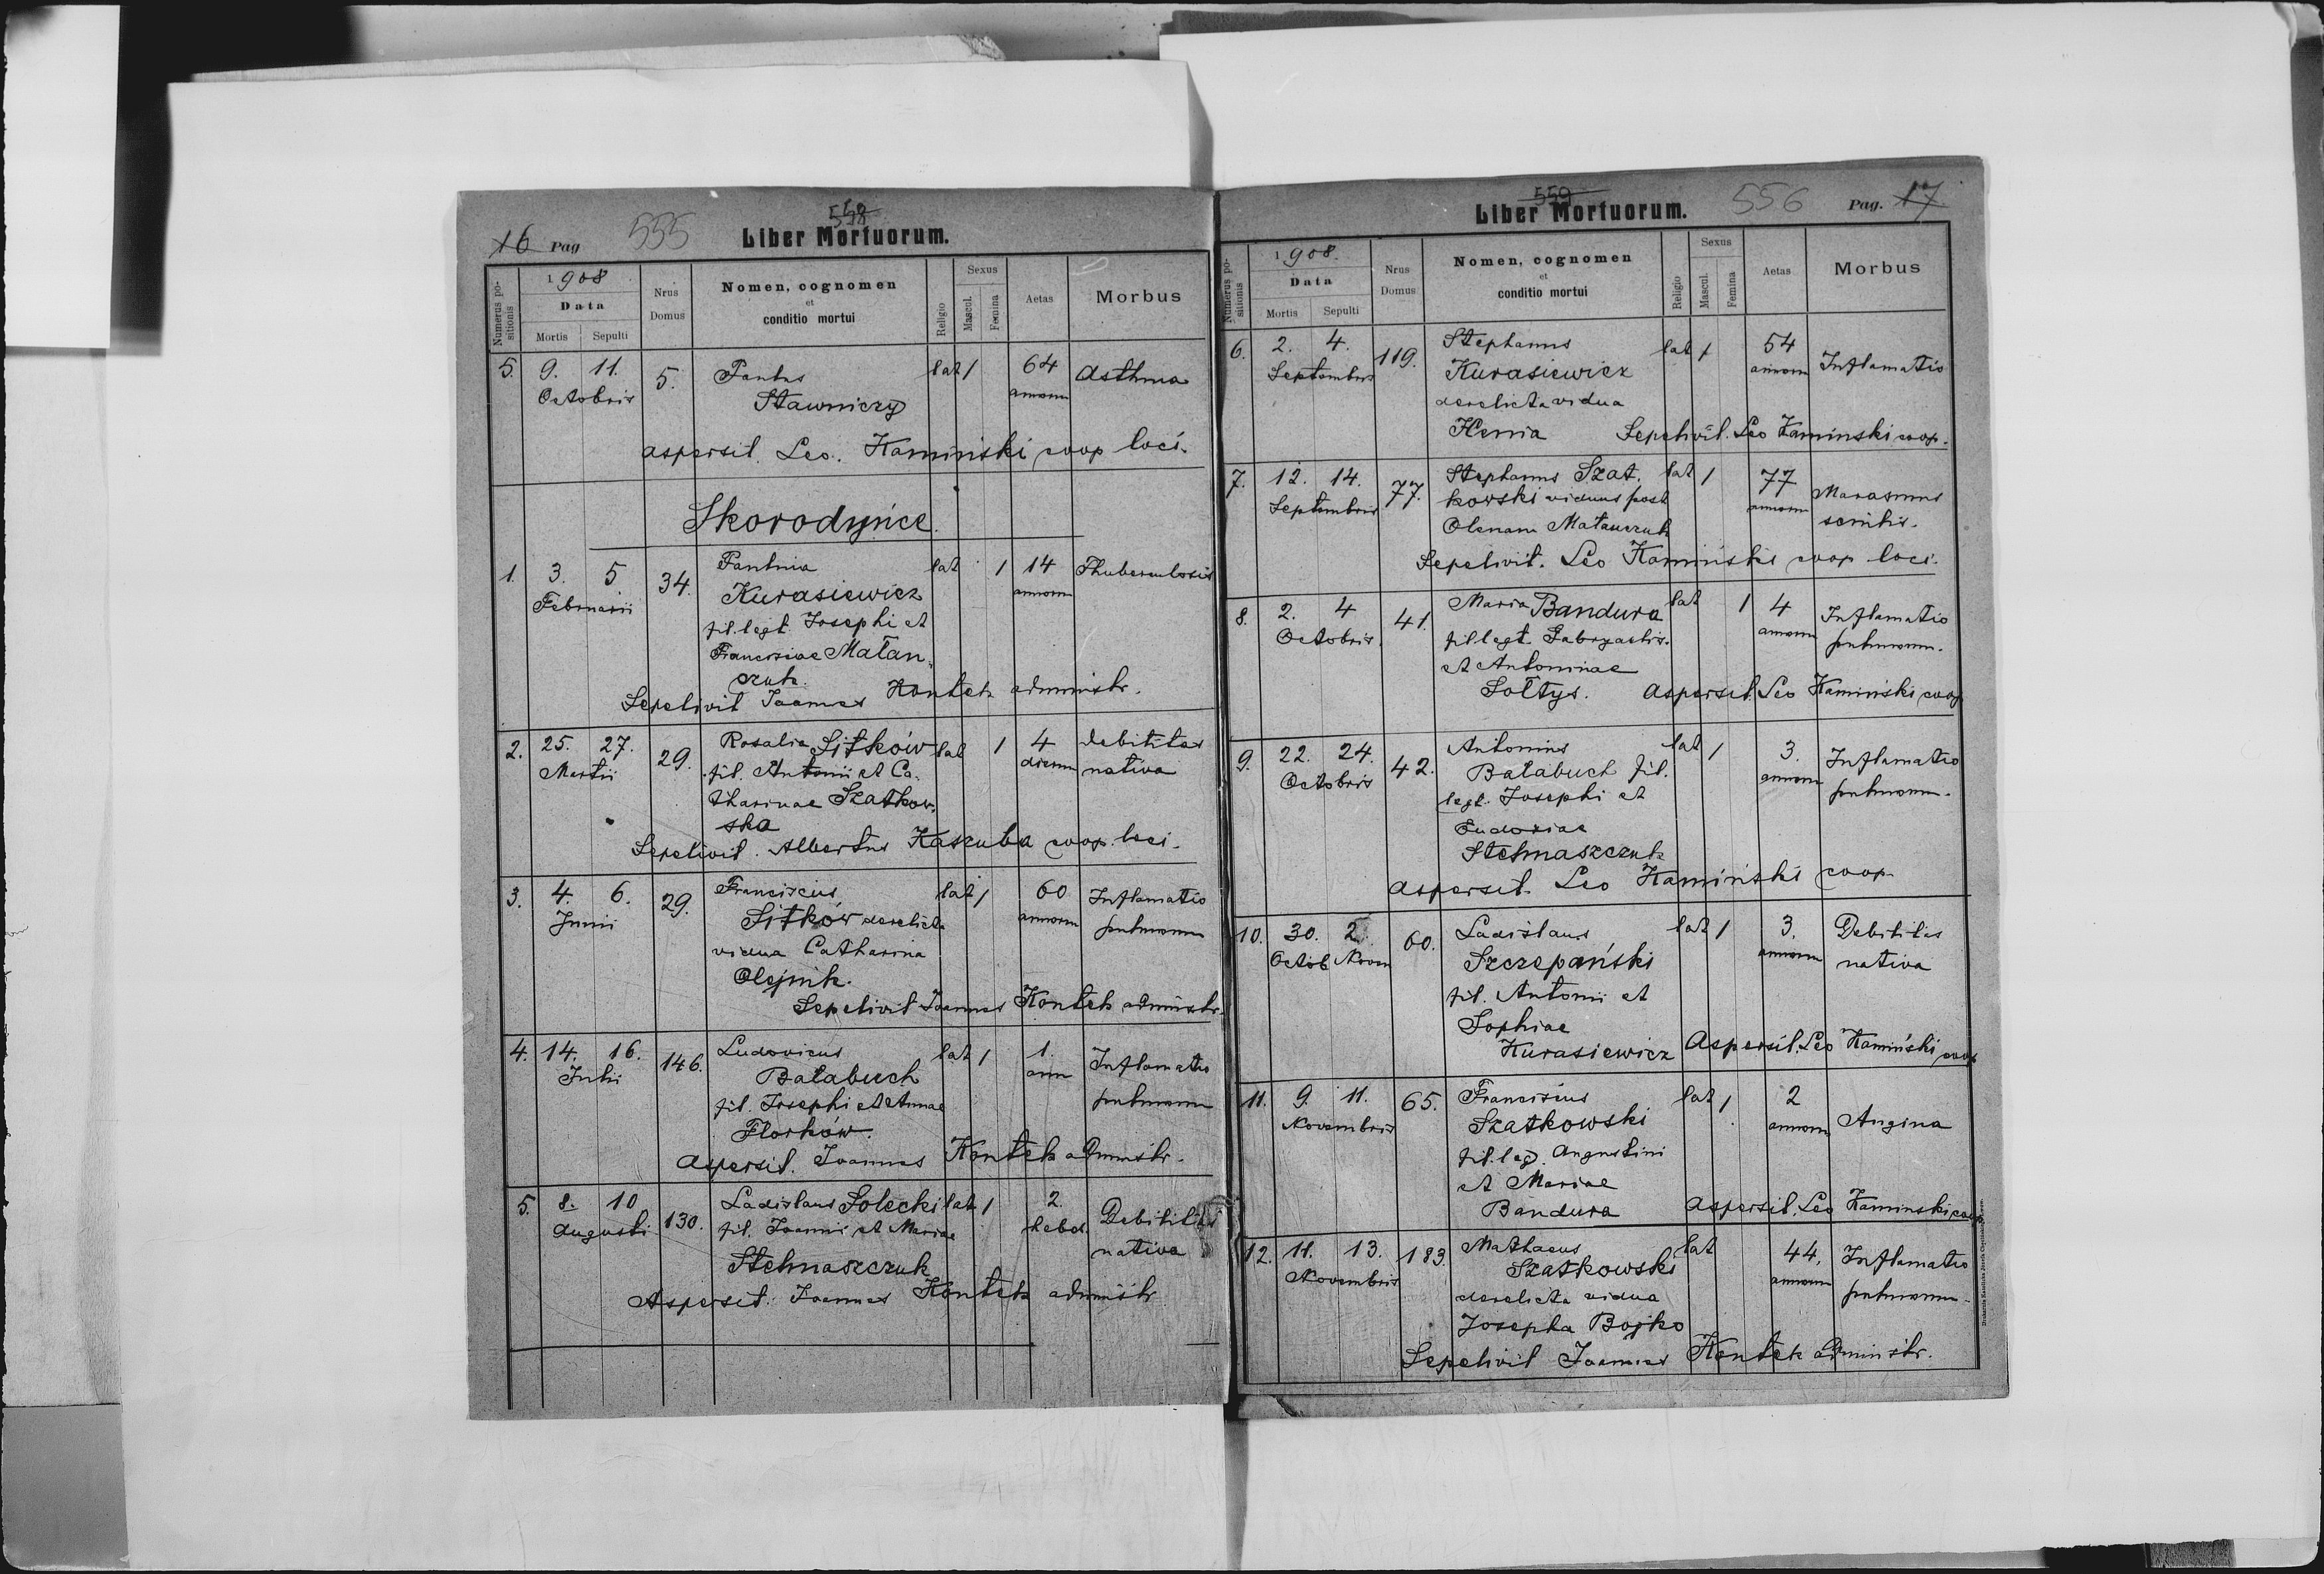 16 Pag 555 558
Liber Mortuorum.
Numerus positionis
1908
Data
Mortis Sepulti
Nrus Domus
Nomen, cognomen
et
conditio mortui
Religio
Sexus
Mascul. Femina
Aetas
Morbus
5. 9. 11. 5. Paulus lat 1 64 Asthma
Octobris Stawniczy annorum
aspersit. Leo. Kamiński coop loci.
Skorodyńce.
1. 3. 5 34. Paulina lat 1 14 Thuberculosis
Februarii Kurasiewicz annorum
fil. legt. Josephi et
Franciscae Matan
czuk.
Sepelivit Joannes Kontek administr.
2. 25. 27. 29. Rosalia Sitków lat 1 4 debilitas
Martii fil. Antonii et Ca- dierum nativa
tharinae Szatkow-
ska
Sepelivit. Albertus Kaszuba coop. loci.
3. 4. 6. 29. Franciscus lat 1 60 Inflamatio
Junii Sitków derelicta annorum pulmonum
vidua Catharina
Olejnik.
Sepelivit Joannes Kontek administr.
4. 14. 16. 146. Ludovicus lat 1 1. Inflamatio
Julii Bałabuch ann pulmonum
fil. Josephi et Annae
Florków.
Aspersit. Joannes Kontek administr.
5. 8. 10 130. Ladislaus Solecki lat 1 2. Debilitas
Augusti fil. Joannis et Mariae hebd. nativa
Stelmaszczuk
Aspersit. Joannes Kontek administr
559
Liber Mortuorum. 556 Pag. 17
Numerus positionis
1908.
Data
Mortis Sepulti
Nrus Domus
Nomen, cognomen
et
conditio mortui
Religio
Sexus
Mascul. Femina
Aetas
Morbus
6. 2. 4. 119. Stephanus lat 1 54 Inflamatio
Septembris Kurasiewicz annorum
derelicta vidua
Sepelivit. Leo Kaminski coop.
7. 12. 14. 77. Stephanus Szat- lat 1 77 Marasmus
Septembris kowski viduus post annorum senilis.
Olenam Matanczuk
Sepelivit. Leo Kamiński coop loci.
8. 2. 4 41. Maria Bandura lat 1 4 Inflamatio
Octobris. fil legt. annorum pulmonum.
et Antoninae
Sołtys. Aspersit. Leo Kamiński coop
9. 22. 24. 42. Antonius lat 1 3. Inflamatio
Octobris Bałabuch fil. annorum pulmonum.
legt. Josephi et
Eudoxiae
Stelmaszczuk
Aspersit. Leo Kamiński coop
10. 30. 2. 60. Ladislaus lat 1 3. Debilitas
Octob Novem Szczepański annorum nativa
fil. Antonii et
Sophiae
Kurasiewicz Aspersit. Leo Kamiński coop
11. 9. 11. 65. Franciscus lat 1 2 Angina
Novembris Szatkowski annorum
fil. leg. Augustini
et Mariae
Bandura Aspersit. Leo Kaminski coop.
12. 11. 13. 183. Mathaeus lat 44. Inflamatio
Novembris Szatkowski annorum pulmonum.
derelicta vidua
Josepha Bojko
Sepelivit Joannes Kontek administr.